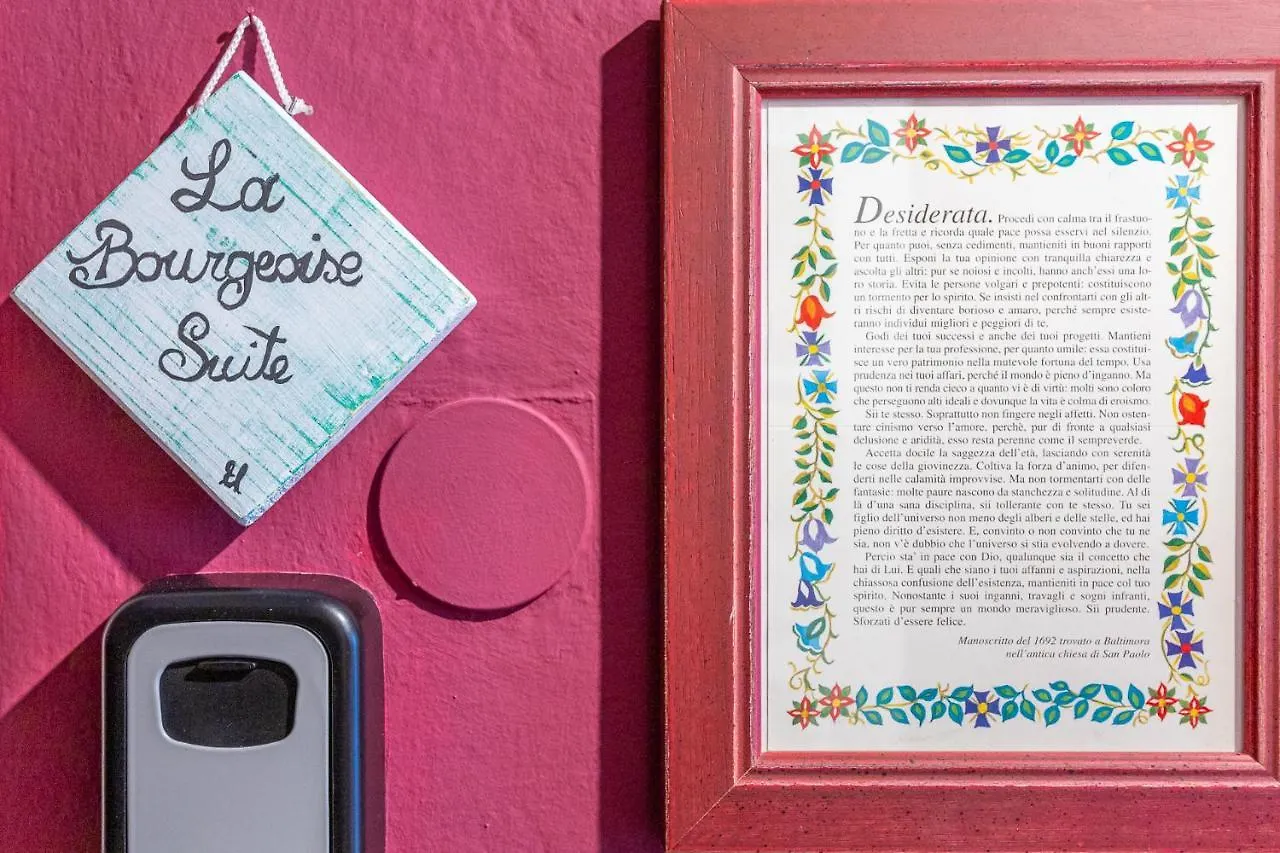 La
Bourgeoise
Suite
Desiderata. Procedi con calma tra il frastuo-
no e la fretta e ricorda quale pace possa esservi nel silenzio.
Per quanto puoi, senza cedimenti, mantieniti in buoni rapporti
con tutti. Esponi la tua opinione con tranquilla chiarezza e
ascolta gli altri: pur se noiosi e incolti, hanno anch'essi una lo-
ro storia. Evita le persone volgari e prepotenti: costituiscono
un tormento per lo spirito. Se insisti nel confrontarti con gli alt-
ri rischi di diventare borioso e amaro, perché sempre esiste-
ranno individui migliori e peggiori di te.
Godi dei tuoi successi e anche dei tuoi progetti. Mantieni
interesse per la tua professione, per quanto umile: essa costitui-
sce un vero patrimonio nella mutevole fortuna del tempo. Usa
prudenza nei tuoi affari, perché il mondo è pieno d'inganno. Ma
questo non ti renda cieco a quanto vi è di virtù: molti sono coloro
che perseguono alti ideali e dovunque la vita è colma di eroismo.
Sii te stesso. Soprattutto non fingere negli affetti. Non osten-
tare cinismo verso l'amore, perchè, pur di fronte a qualsiasi
delusione e aridità, esso resta perenne come il sempreverde.
Accetta docile la saggezza dell'età, lasciando con serenità
le cose della giovinezza. Coltiva la forza d'animo, per difen-
derti nelle calamità improvvise. Ma non tormentarti con delle
fantasie: molte paure nascono da stanchezza e solitudine. Al di
là d'una sana disciplina, sii tollerante con te stesso. Tu sei
figlio dell'universo non meno degli alberi e delle stelle, ed hai
pieno diritto d'esistere. E, convinto o non convinto che tu ne
sia, non v'è dubbio che l'universo si stia evolvendo a dovere.
Perciò sta' in pace con Dio, qualunque sia il concetto che
hai di Lui. E quali che siano i tuoi affanni e aspirazioni, nella
chiassosa confusione dell'esistenza, mantieniti in pace col tuo
spirito. Nonostante i suoi inganni, travagli e sogni infranti,
questo è pur sempre un mondo meraviglioso. Sii prudente.
Sforzati d'essere felice.
Manoscritto del 1692 trovato a Baltimora
nell'antica chiesa di San Paolo